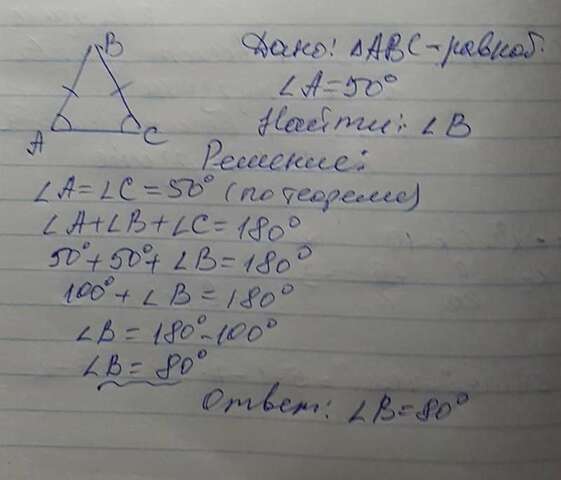 B
Дано: △ABC-равноб.
∠A=50°
A
C
Найти: ∠B
Решение:
∠A=∠C=50° (по теореме)
∠A+∠B+∠C=180°
50°+50°+∠B=180°
100°+∠B=180°
∠B=180°-100°
∠B=80°
Ответ: ∠B=80°